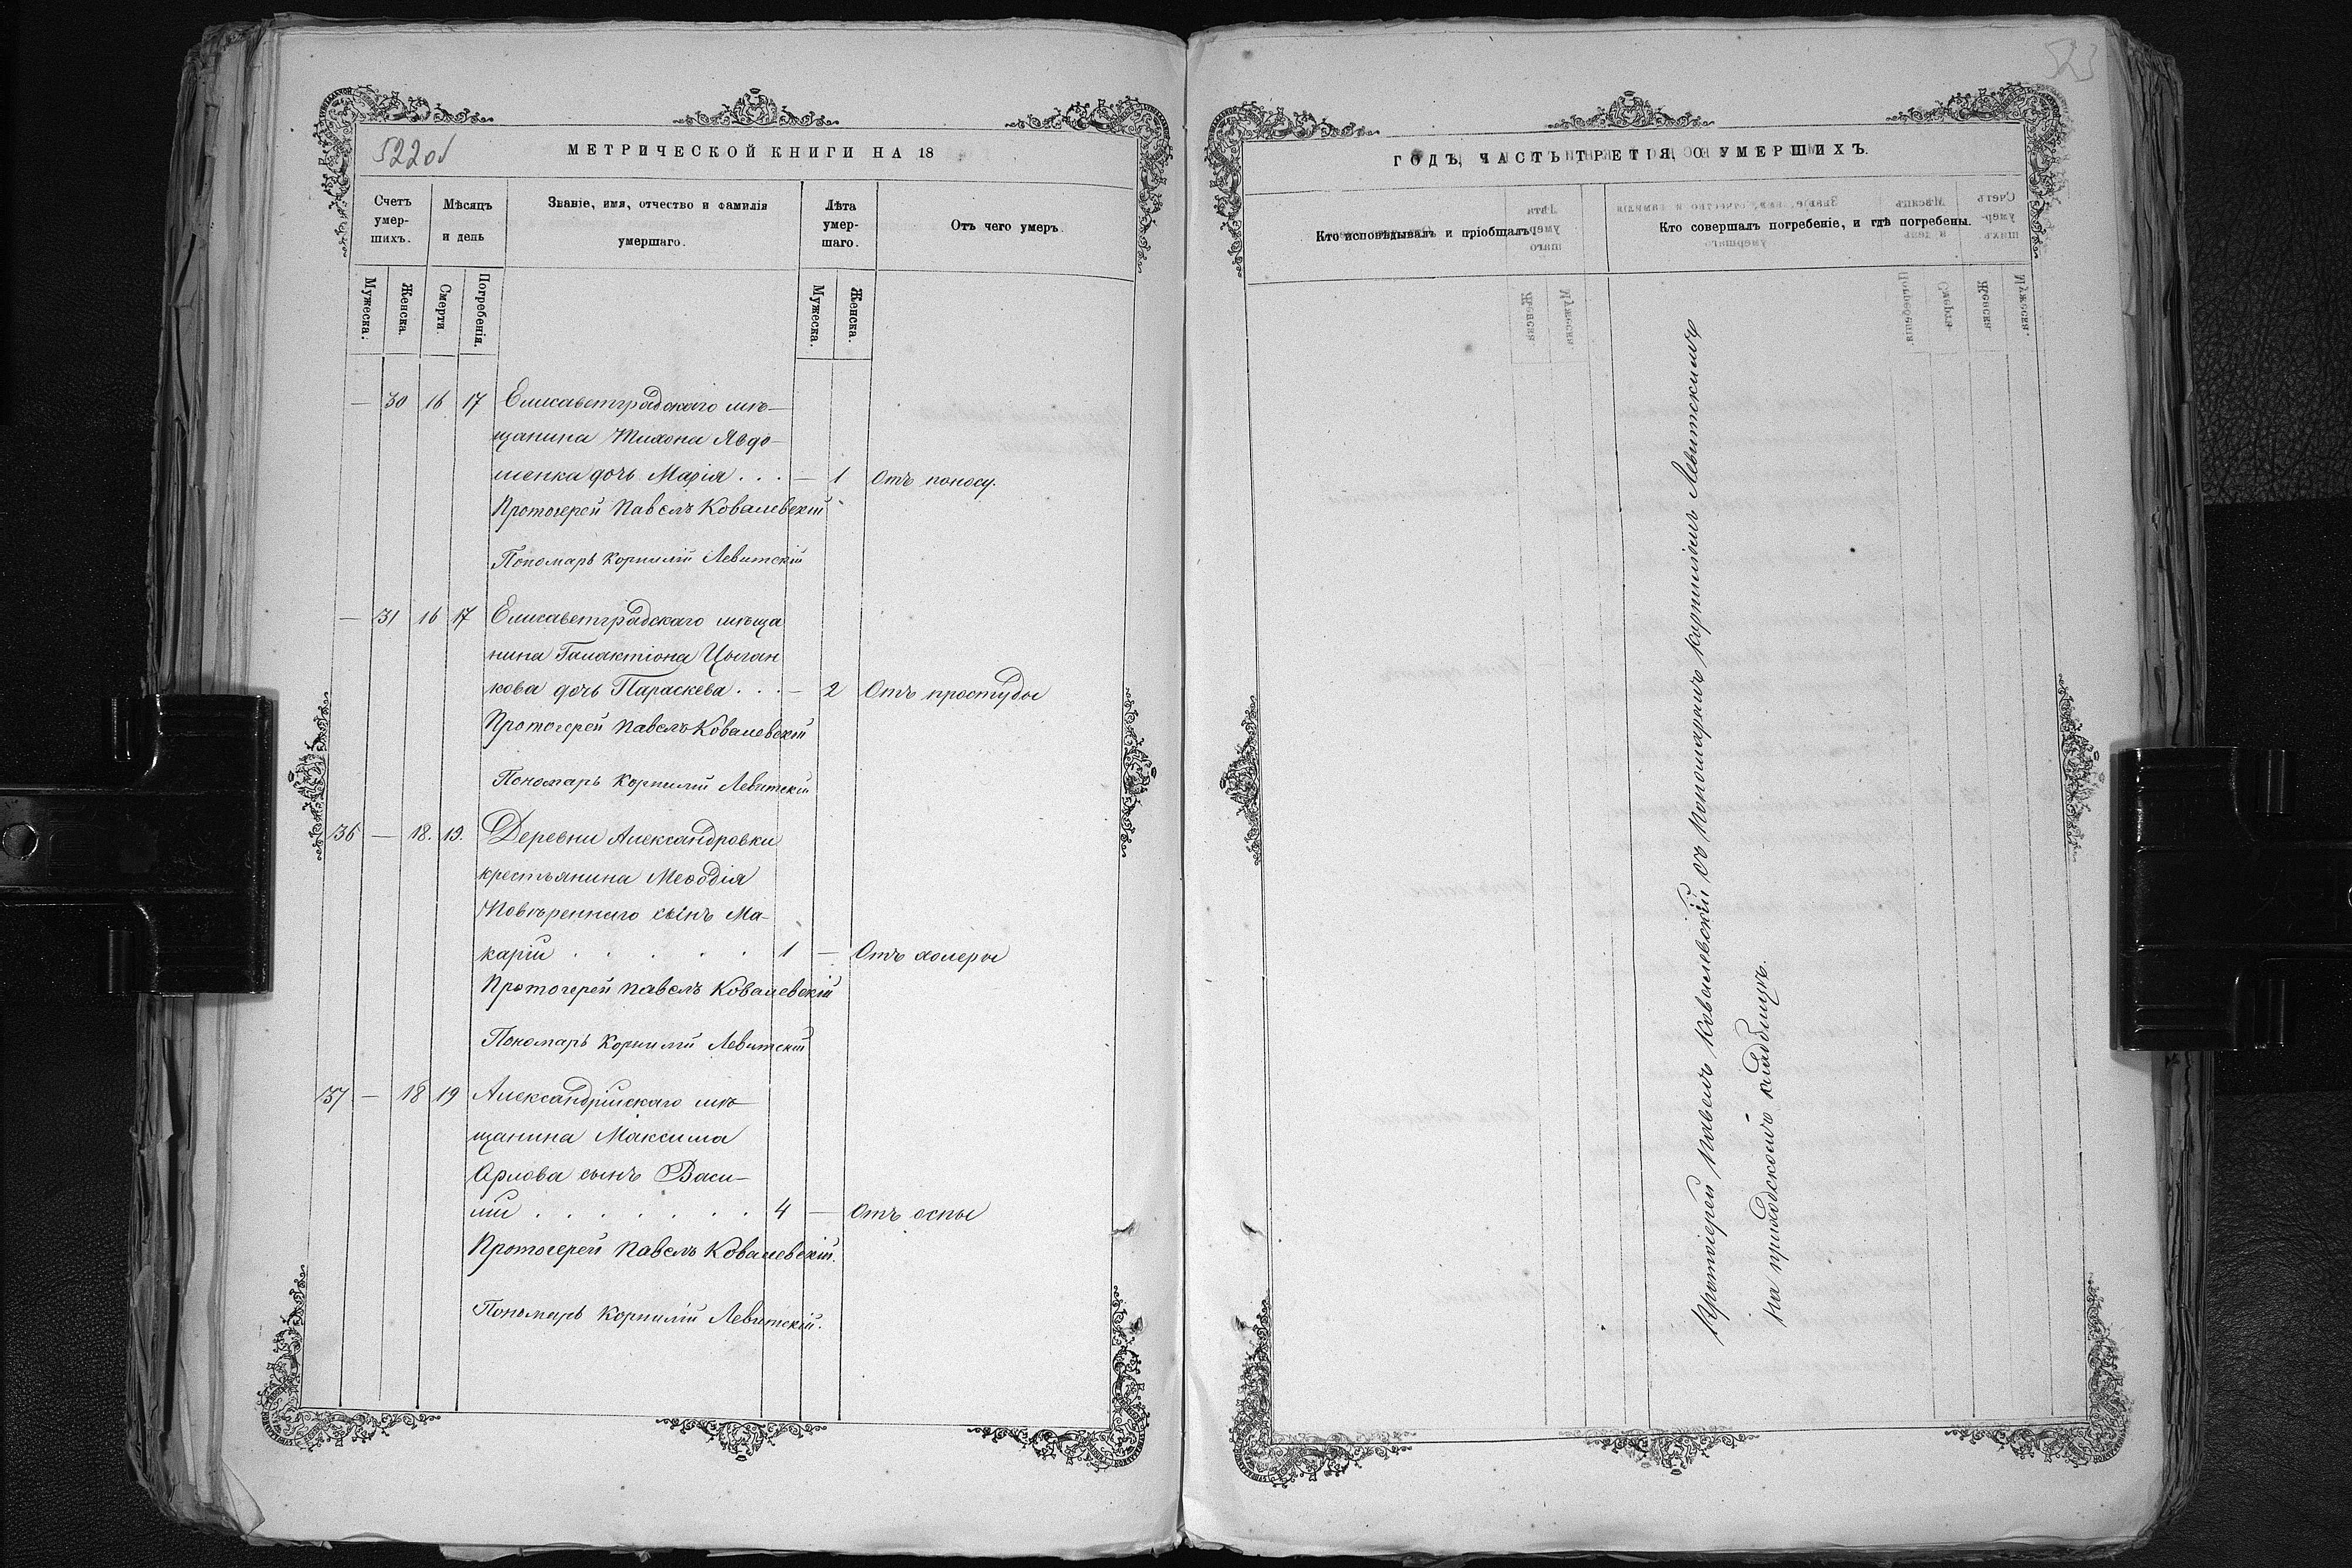 522об
МЕТРИЧЕСКОЙ КНИГИ НА 18
Счетъ умер-шихъ.
Мѣсяцъ и день
Званіе, имя, отчество и фамилія умершаго.
Лѣта умер-шаго.
Отъ чего умеръ.
Мужеска.
Женска.
Смерти.
Погребенія.
Мужеска.
Женска.
— 30 16 17 Елисаветградскаго мѣ-
щанина Тихона Явдо-
шенка дочь Марія . . . — 1 Отъ поносу.
Протоіерей Павелъ Ковалевскій
Пономарь Корнилій Левитскій
— 31 16 17 Елисаветградскаго мѣща
нина Галактіона Цыган
кова дочь Параскева . . . — 2 Отъ простуды
Протоіерей Павелъ Ковалевскій
Пономарь Корнилій Левитскій
36 — 18. 19. Деревни Александровки
крестьянина Меѳодія
Повѣреннаго сынъ Ма-
карій . . . . . . 1 — Отъ холеры
Протоіерей Павелъ Ковалевскій
Пономарь Корнилій Левитскій
37 — 18 19 Александрійскаго мѣ-
щанина Максима
Орлова сынъ Васи-
лій . . . . . . . 4 — Отъ оспы
Протоіерей Павелъ Ковалевскій.
Пономарь Корнилій Левитскій.
523
ГОДЪ, ЧАСТЬ ТРЕТІЯ, О УМЕРШИХЪ.
Кто исповѣдывалъ и пріобщалъ.
Кто совершалъ погребеніе, и гдѣ погребены.
Протоіерей Павелъ Ковалевскій съ Пономаремъ Корниліемъ Левитскимъ
на приходскомъ кладбищѣ.